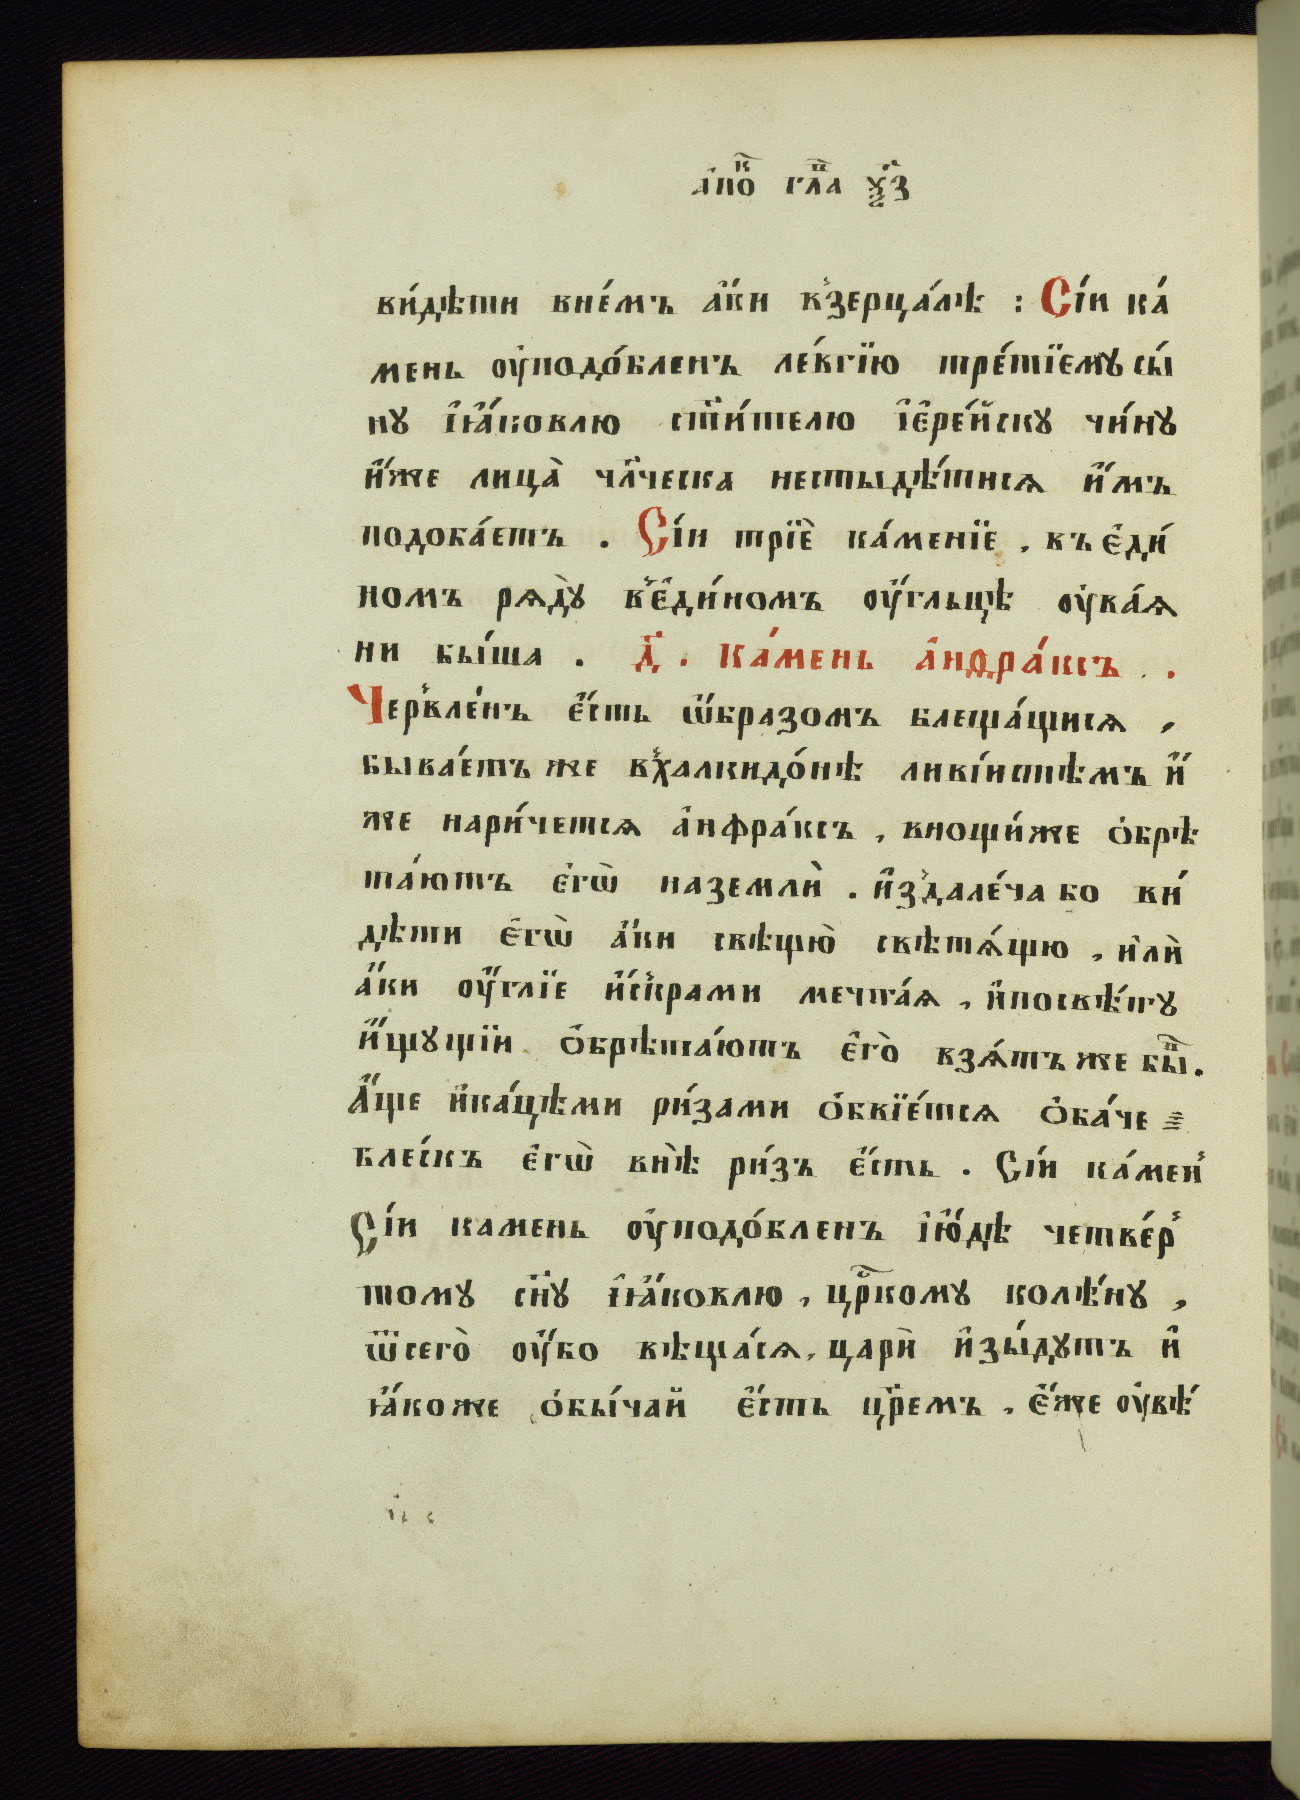 а҆поⷦ҇ глⷡ҇а ѯ҃з
ви́дѣти вне́мъ а҆́ки в̾зерца́лѣ : Сі́и ка́
мень ᲂу҆подо́бленъ ле́вгїю тре́тїемꙋ сы́
нꙋ і҆ꙗ҆́ковлю ст҃и́телю і҆є҆ре́йскꙋ чи́нꙋ
и҆́же лица̀ чл҃ческа нестыдѣ́тисѧ и҆́мъ
подоба́етъ . Сі́и трїѐ ка́менїе , въ є҆ди́
номъ рѧдꙋ̀ в̾є҆ди́номъ ᲂу҆́гльцѣ ᲂу҆ка́ѧ
ни бы́ша . д҃ . Ка́мень а҆ндра́ксъ .
Чер̾вле́нъ є҆́сть ѡ҆́бразомъ блеща́щисѧ ,
быва́етъ же в̾халкидо́нѣ ливі́истѣмъ и҆́
же нари́четсѧ а҆нфра́ксъ , внощи́же ѡ҆брѣ
та́ютъ є҆гѡ̀ наземлѝ . и҆з̾дале́ча бо ви́
дѣти є҆гѡ̀ а҆́ки свѣщю̀ свѣтѧ́щю , и҆лѝ
а҆́ки ᲂу҆́глїе и҆́с̾крами мечта́ѧ , и҆посвѣ́тꙋ
и҆́щꙋщїи ѡ҆брѣта́ютъ є҆го̀ взѧ́тъ же бы́ⷭ҇ .
А҆́ще и҆ка́цѣми ри́зами ѡ҆бвїе́тсѧ ѻ҆ба́че
бле́скъ є҆гѡ̀ внѣ̀ ри́зъ є҆́сть . Сі́и ка́мен̾
Сі́и камень ᲂу҆подо́бленъ і҆ю҆́дѣ четве́р̾
томꙋ сн҃ꙋ і҆ꙗ҆́ковлю , црⷭ҇комꙋ колѣ́нꙋ ,
ѿсего̀ ᲂу҆́бо вѣща́сѧ , царѝ и҆зы́дꙋтъ и҆
ꙗ҆́коже ѻ҆бы́чай є҆́сть цр҃емъ , є҆́же ᲂу҆вѣ́